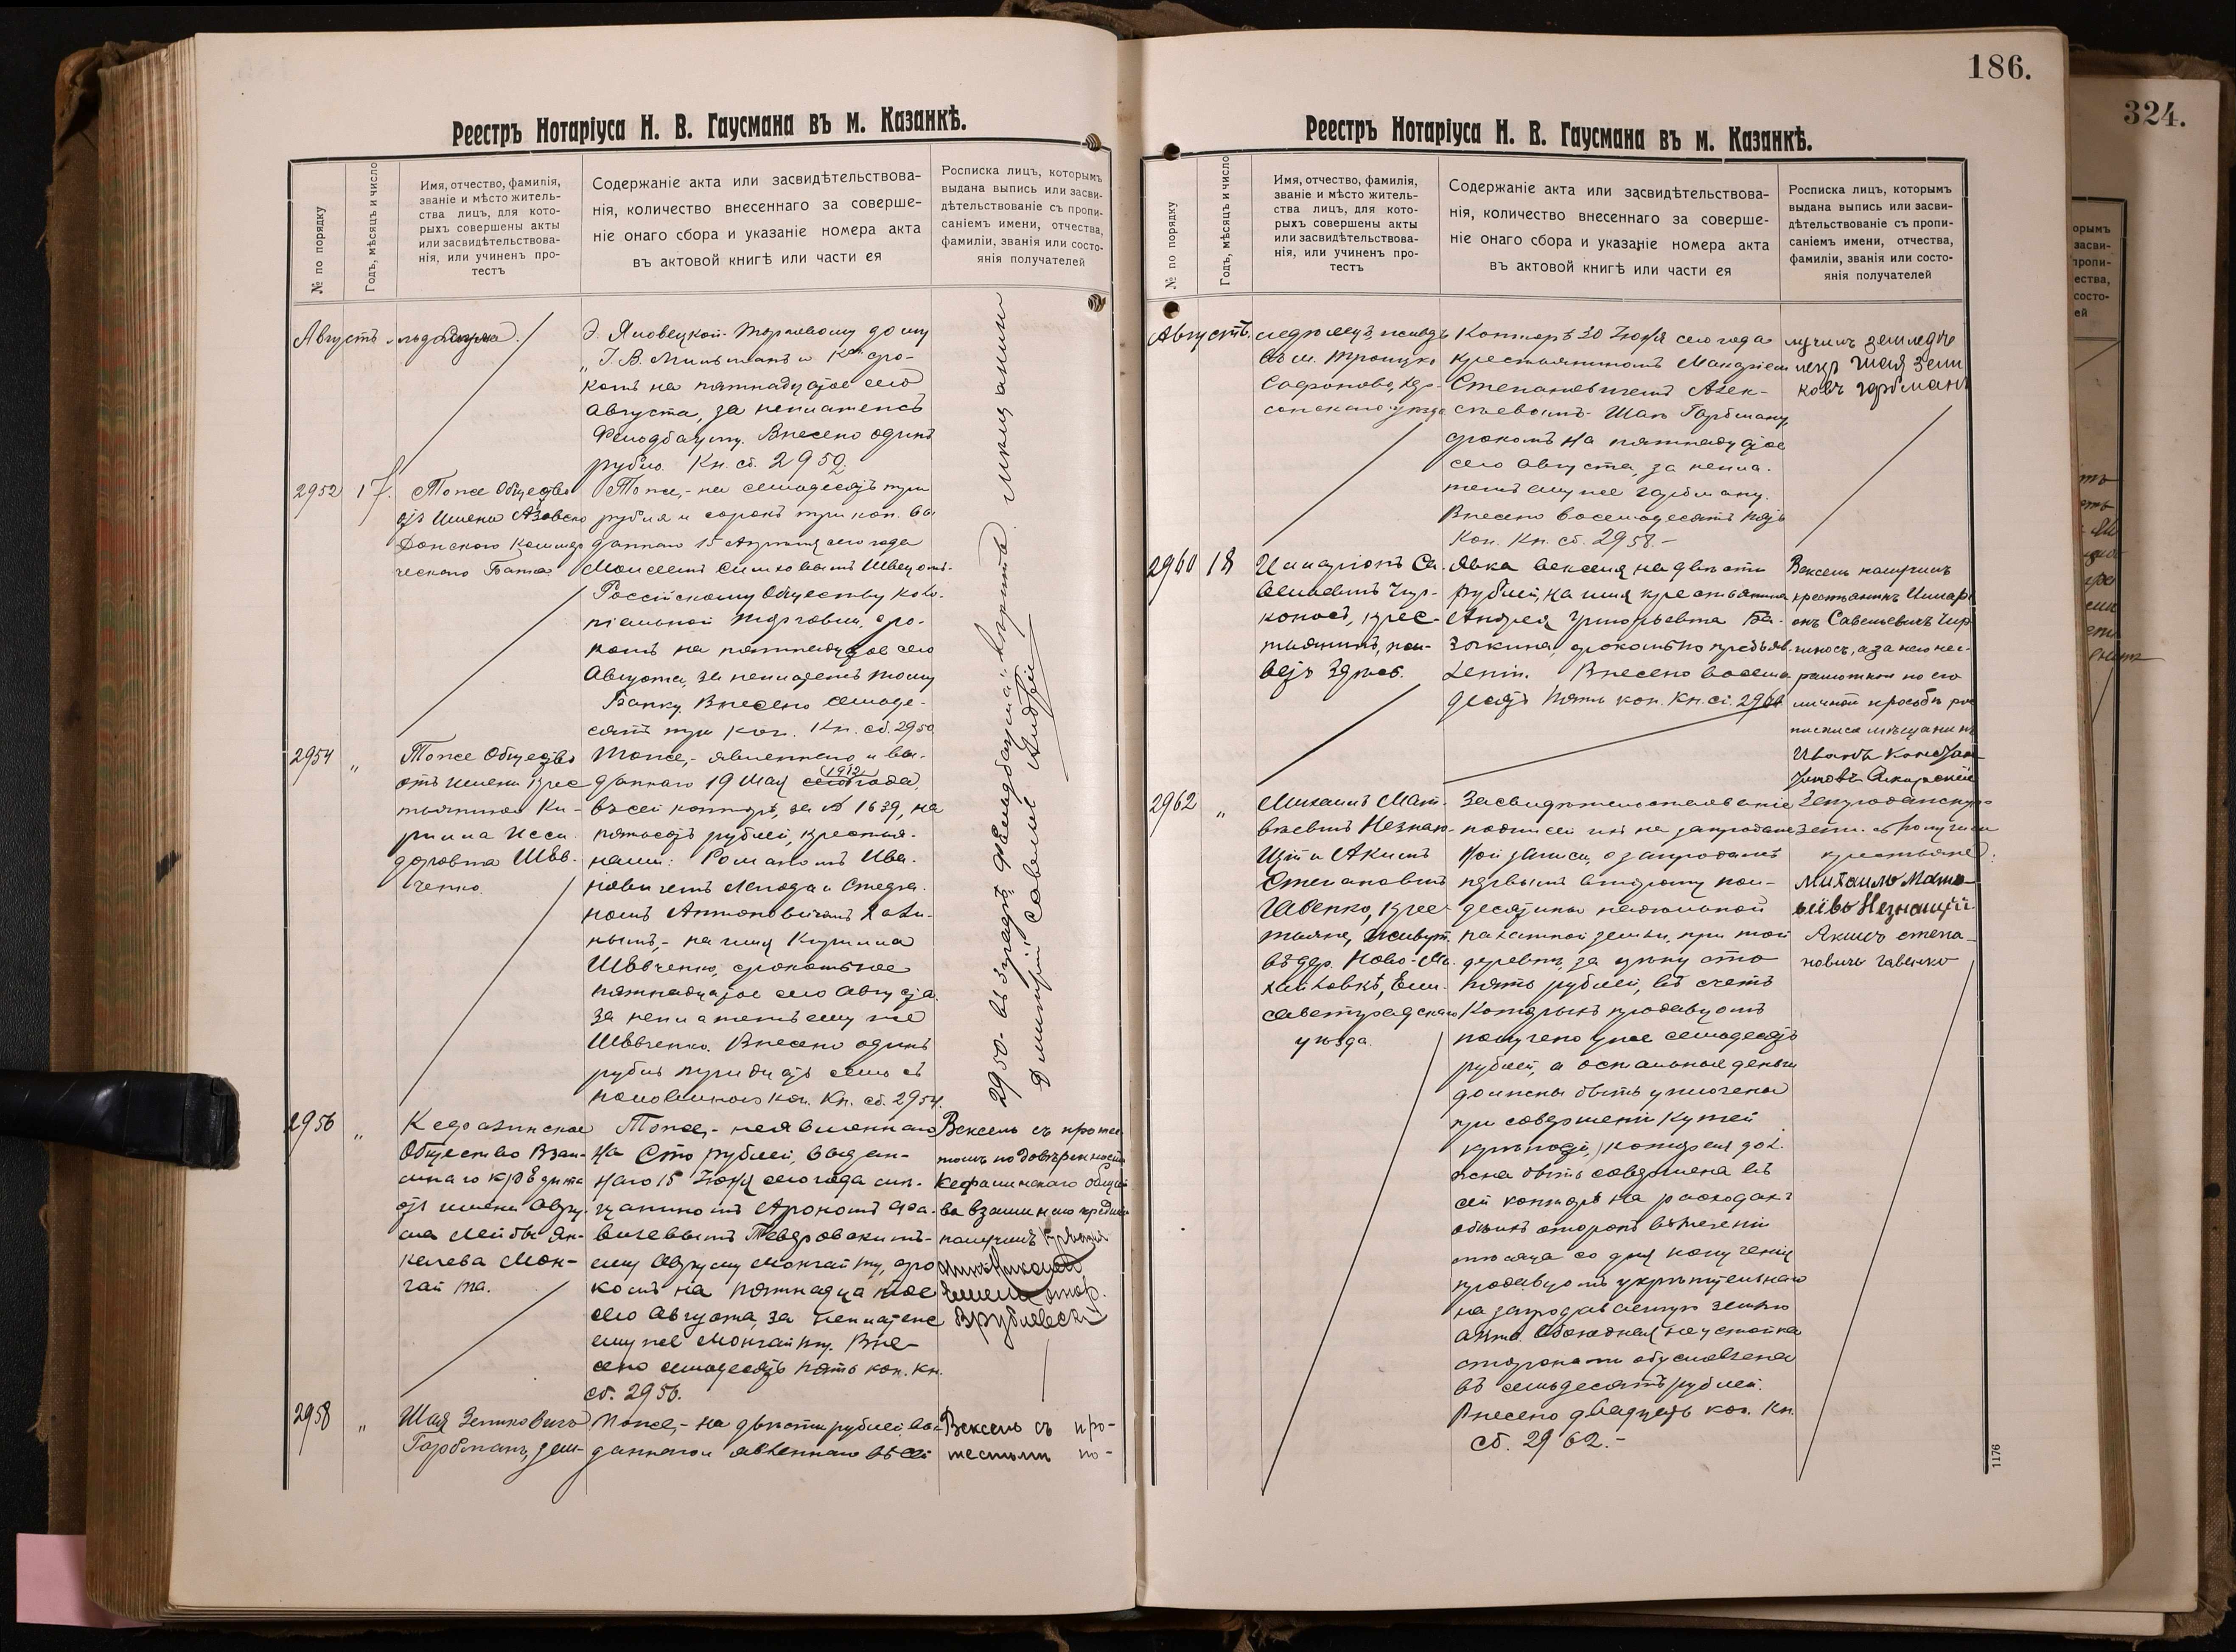 186.
324.
Реестръ Нотаріуса Н. В. Гаусмана въ м. Казанкѣ.
№ по порядку
Годъ, мѣсяцъ и число
Имя, отчество, фамилія,
званіе и мѣсто житель-
ства лицъ, для кото-
рыхъ совершены акты
или засвидѣтельствова-
нія, или учиненъ про-
тестъ
Содержаніе акта или засвидѣтельствова-
нія, количество внесеннаго за соверше-
ніе онаго сбора и указаніе номера акта
въ актовой книгѣ или части ея
Росписка лицъ, которымъ
выдана выпись или засви-
дѣтельствованіе съ пропи-
саніемъ имени, отчества,
фамиліи, званія или состо-
янія получателей
Августъ
Э. Яновецкой Торговому дому
„І. В. Мильманъ и Кº сро-
комъ на пятнадцатое сего
Августа, за неплатежъ
Фельдбауму. Внесено одинъ
рубль Кн. ст. 2952.
2952
17.
Тоже Общество
отъ имени Азовско
Донского Коммер
ческаго Банка
Тоже,- на семьдесятъ три
рубля и сорокъ три коп. вы
даннаго 15 Апрѣля сего года
Моисеемъ Симховымъ Швецомъ-
Россійскому Обществу Коло-
ніальной торговли, сро-
комъ на пятнадцатое сего
Августа, за неплатежъ тому
Банку. Внесено семьде-
сятъ три коп. Кн. ст. 2950
2954
„
Тоже Общество
отъ имени крес
тьянина Ки-
рилла Исси
доровича Шев-
ченко.
Тоже,- явленнаго и вы-
даннаго 19 Мая 1912 года,
въ сей конторѣ, за № 1639, на
пятьсотъ рублей, крестья-
нами: Романомъ Ива-
новичемъ и Стефа-
номъ Антоновичемъ
на имя Кирилла
Шевченко, срокомъ на
пятнадцатое сего Августа
за неплатежъ ему же
Шевченко. Внесено одинъ
рубль тридцать семь съ
половиною коп. Кн. ст. 2954.
2950
Дмитрій Савельевъ
2956
„
Общество Взаи-
мнаго Кредита
отъ имени Абра-
ма Лейбы Ян-
келева Мон-
гайта.
Тоже,- неявленнаго
на Сто рублей, выдан-
наго 15 Іюня сего года мѣ-
щаниномъ Арономъ
ему Абраму Монгайту, сро
комъ на пятнадцатое
сего Августа, за неплатежъ
ему же Монгайту. Вне-
сено семьдесятъ пять коп. Кн.
ст. 2956.
Вексель съ протес
томъ по довѣренности
ва взаимнаго кредита
получилъ
Врублевскій
2958
„
Шая Зеликовичъ
Гарбманъ, зем-
Тоже,- на двѣсти рублей, вы-
даннаго и явленнаго въ сей
Вексель съ про-
тестомъ по-
Реестръ Нотаріуса Н. В. Гаусмана въ м. Казанкѣ.
№ по порядку
Годъ, мѣсяцъ и число
Имя, отчество, фамилія,
званіе и мѣсто житель-
ства лицъ, для кото-
рыхъ совершены акты
или засвидѣтельствова-
нія, или учиненъ про-
тестъ
Содержаніе акта или засвидѣтельствова-
нія, количество внесеннаго за соверше-
ніе онаго сбора и указаніе номера акта
въ актовой книгѣ или части ея
Росписка лицъ, которымъ
выдана выпись или засви-
дѣтельствованіе съ пропи-
саніемъ имени, отчества,
фамиліи, званія или состо-
янія получателей
Августъ.
ледѣлецъ, живущ.
въ м. Троицко
Сафоново, Хер-
сонскаго уѣзда
Конторѣ 30 Іюня сего года
крестьяниномъ Макаріемъ
Степановичемъ Алек-
сѣевымъ Шаѣ Гарбману,
срокомъ на пятнадцатое
сего августа, за непла-
тежъ ему же Гарбману.
Внесено восемьдесятъ пять
Коп. Кн. ст. 2958.-
лучилъ земледѣ
лецъ Шая Зели
ковъ Гарбманъ
2960
18
Иларіонъ Са-
вельевичъ Чер-
коносъ, крес-
тьянинъ, жи-
ветъ Здѣсь.
Явка векселя на двѣсти
рублей, на имя крестьянина
Андрея Григорьевича Ба-
зыкина, срокомъ по предъяв-
леніи. Внесено восемь
десятъ пять коп. Кн. ст. 2960
Вексель получилъ
крестьянинъ Илларі
онъ Савельевичъ Чер
коносъ, а за него нег-
рамотнаго по его
личной просьбѣ рос
писался мѣщанинъ
Иванъ Констан
тиновъ
2962
„
Михаилъ Мат-
вѣевичъ Незнаю-
щій и Акимъ
Степановичъ
Гавенко, крес-
тьяне, живут.
въ дер. Ново-Ми-
хайловкѣ, Ели-
саветградскаго
уѣзда.
Засвидѣтельствованіе
подписей ихъ на запродаж
ной записи, о запродажѣ
первымъ второму пол-
десятины надѣльной
пахатной земли, при той
деревнѣ, за цѣну сто
пять рублей, въ счетъ
Которыхъ продавцомъ
получено уже семьдесятъ
рублей, а остальныя деньги
должны быть уплочены
при совершеніи Купчей
крѣпости, которая дол-
жна быть совершена въ
сей конторѣ на расходахъ
обѣихъ сторонъ въ теченіи
мѣсяца со дня полученія
продавцомъ укрѣпительнаго
на запродаваемую землю
Акта. Обоюдная неустойка
сторонами обусловлена
въ семьдесятъ рублей.
Внесено двадцать коп. Кн.
ст. 2962.-
Запродажную
зап. съ получили
крестьяне:
Михаилъ Матв
ѣевъ Незнающій
Акимъ степа-
новичъ Гавенко
1176
орымъ
засви-
пропи-
ества,
состо-
ей